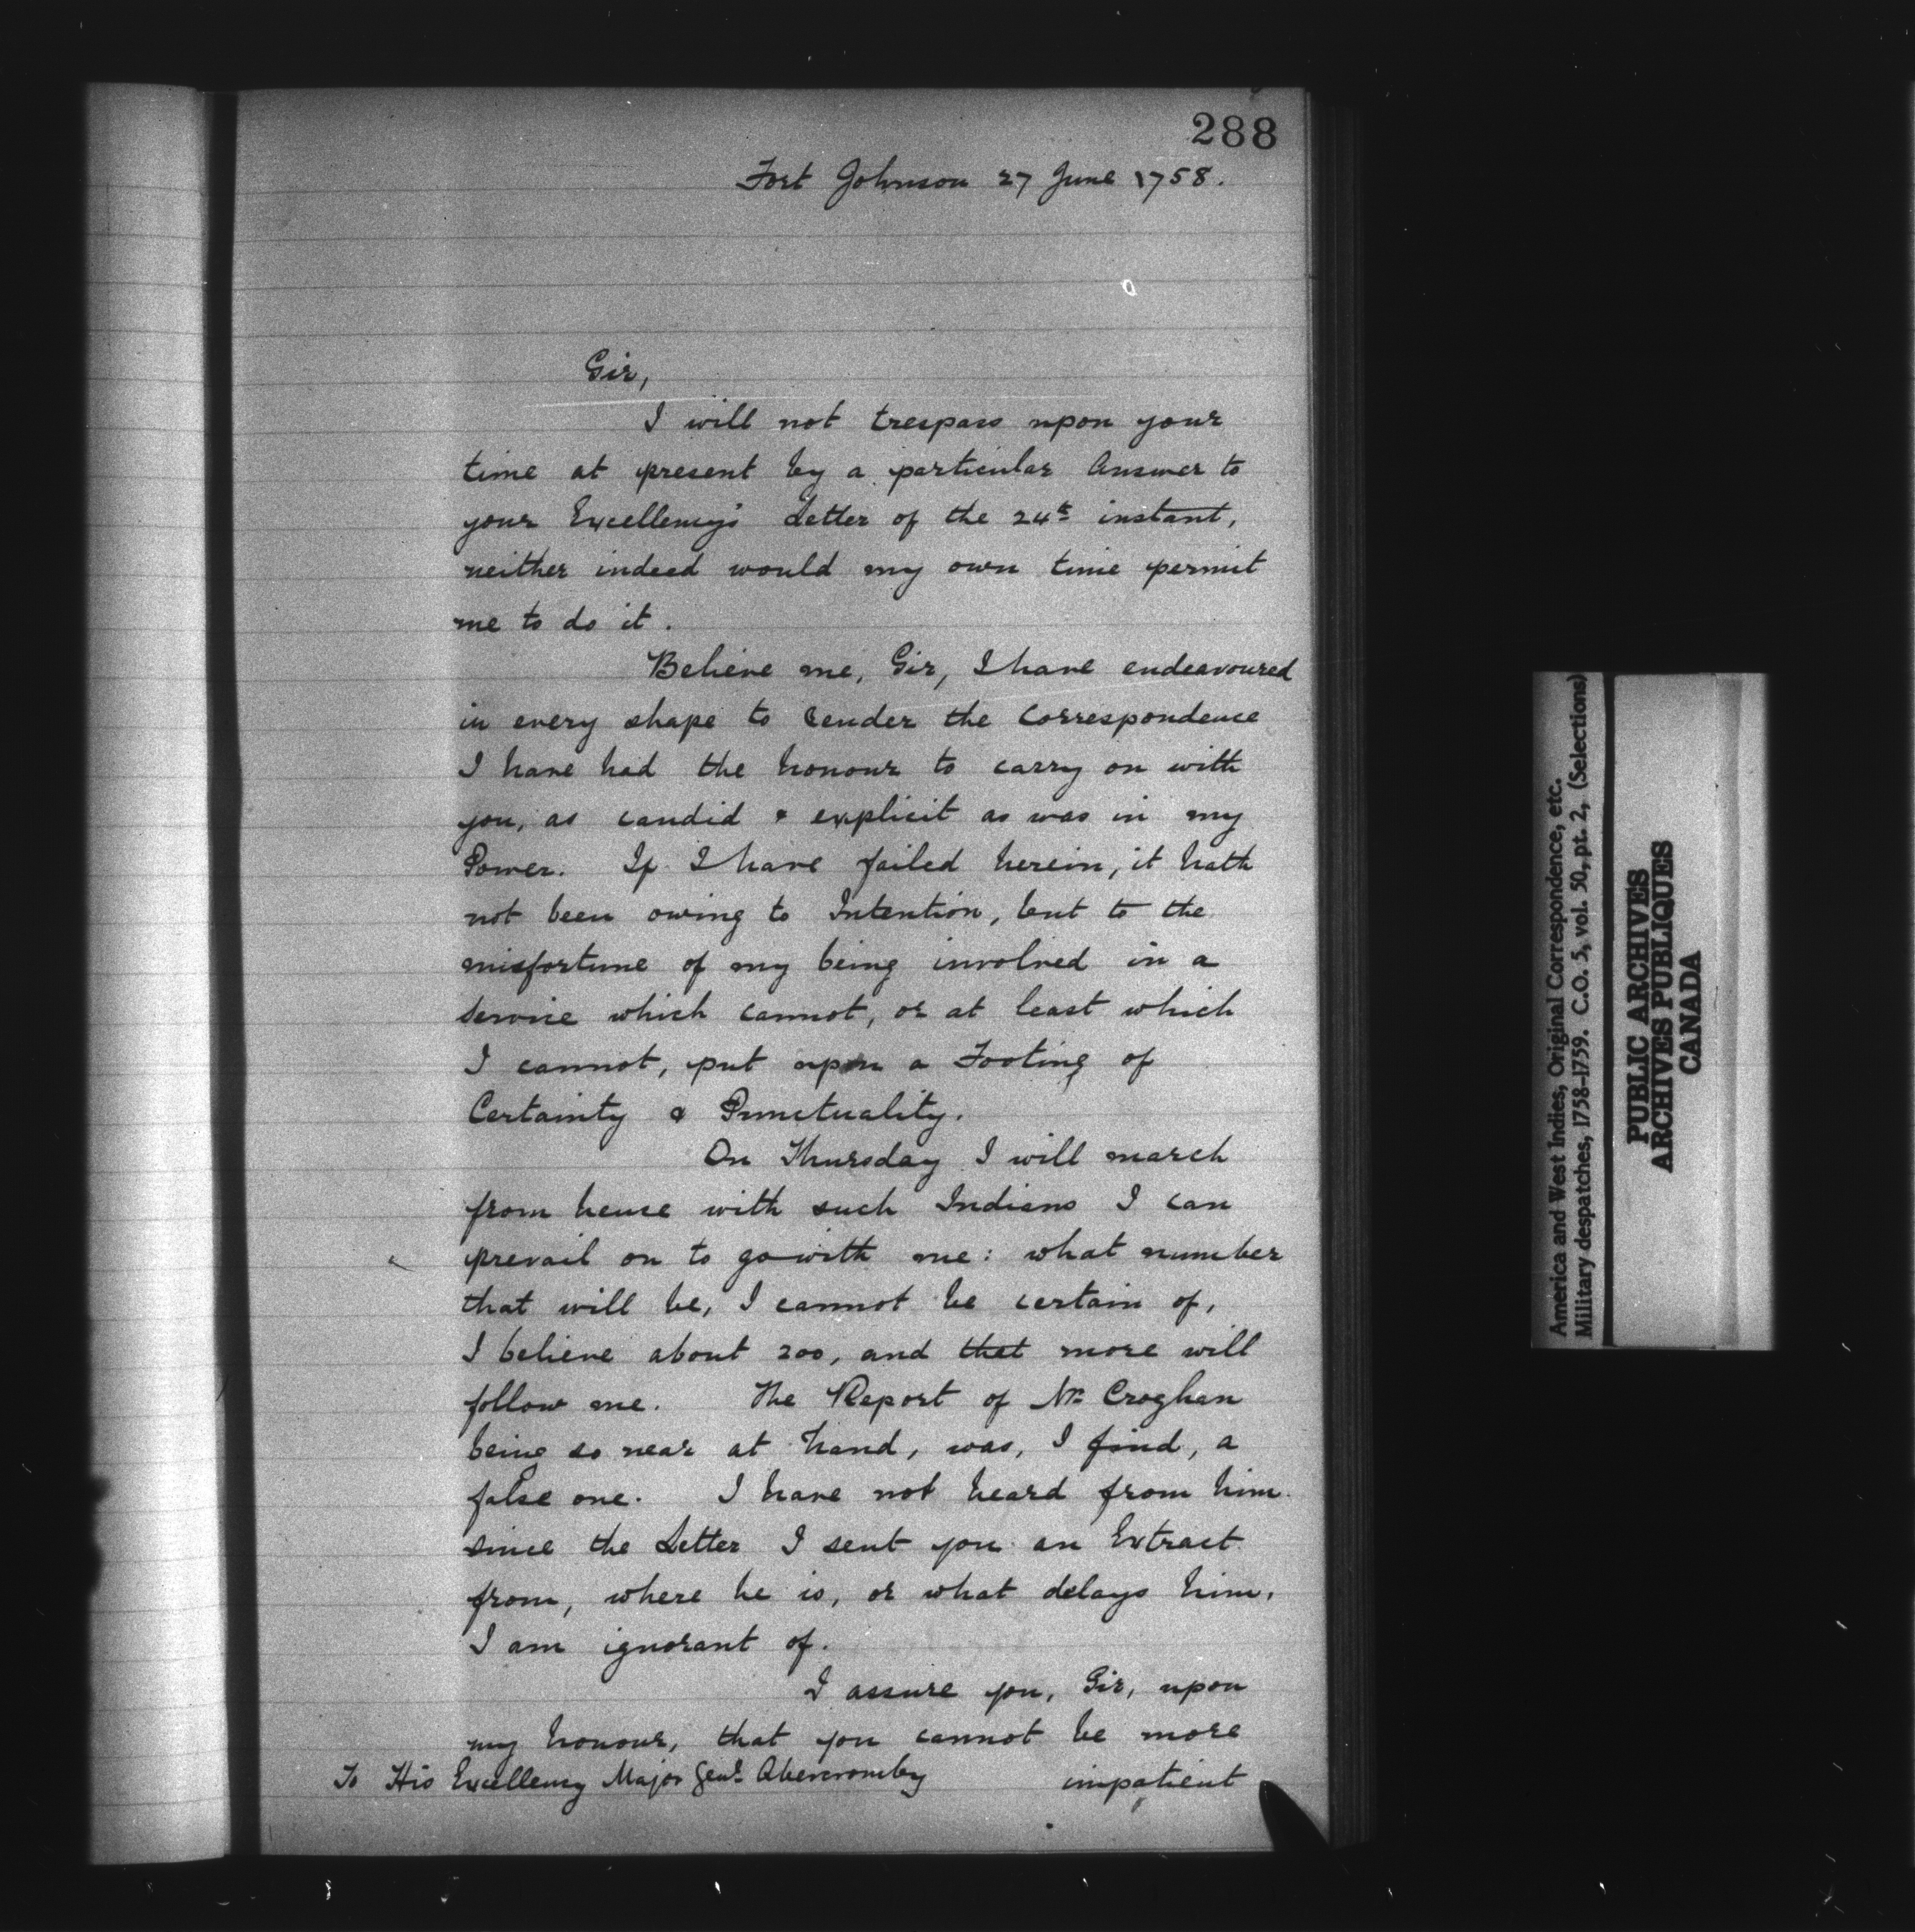 288
Fort Johnson 27 June 1758.
Sir,
I will not trespass upon your
time at present by a particular Answer to
your Excellency's Letter of the 24th instant,
neither indeed would my own time permit
me to do it.
Believe me, Sir, I have endeavoured
in every shape to render the Correspondence
I have had the honour to carry on with
you, as candid & explicit as was in my
Power. If I have failed herein, it hath
not been owing to Intention, but to the
misfortune of my being involved in a
service which cannot, or at least which
I cannot, put upon a Footing of
Certainty & Punctuality.
On Thursday I will march
from hence with such Indians I can
prevail on to go with me: what number
that will be, I cannot be certain of,
I believe about 200, and that more will
follow me. The Report of Mr. Croghan
being so near at hand, was, I find, a
false one. I have not heard from him
since the Letter I sent you an Extract
from, where he is, or what delays him,
I am ignorant of.
I assure you, Sir, upon
my honour, that you cannot be more
impatient
To His Excellency Major Genl. Abercromby
America and West Indies, Original Correspondence, etc.
Military despatches, 1758-1759. C.O. 5, vol. 50, pt. 2, (Selections)
PUBLIC ARCHIVES
ARCHIVES PUBLIQUES
CANADA